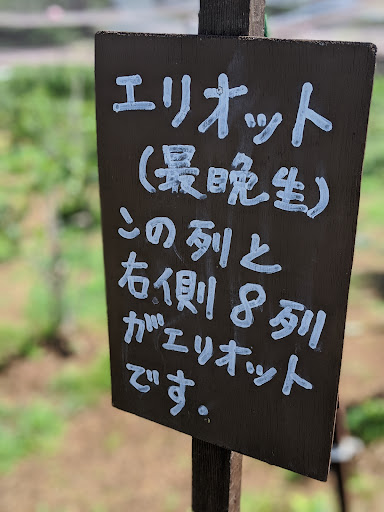 エリオット
(最晩生)
この列と
右側8列
がエリオット
です。